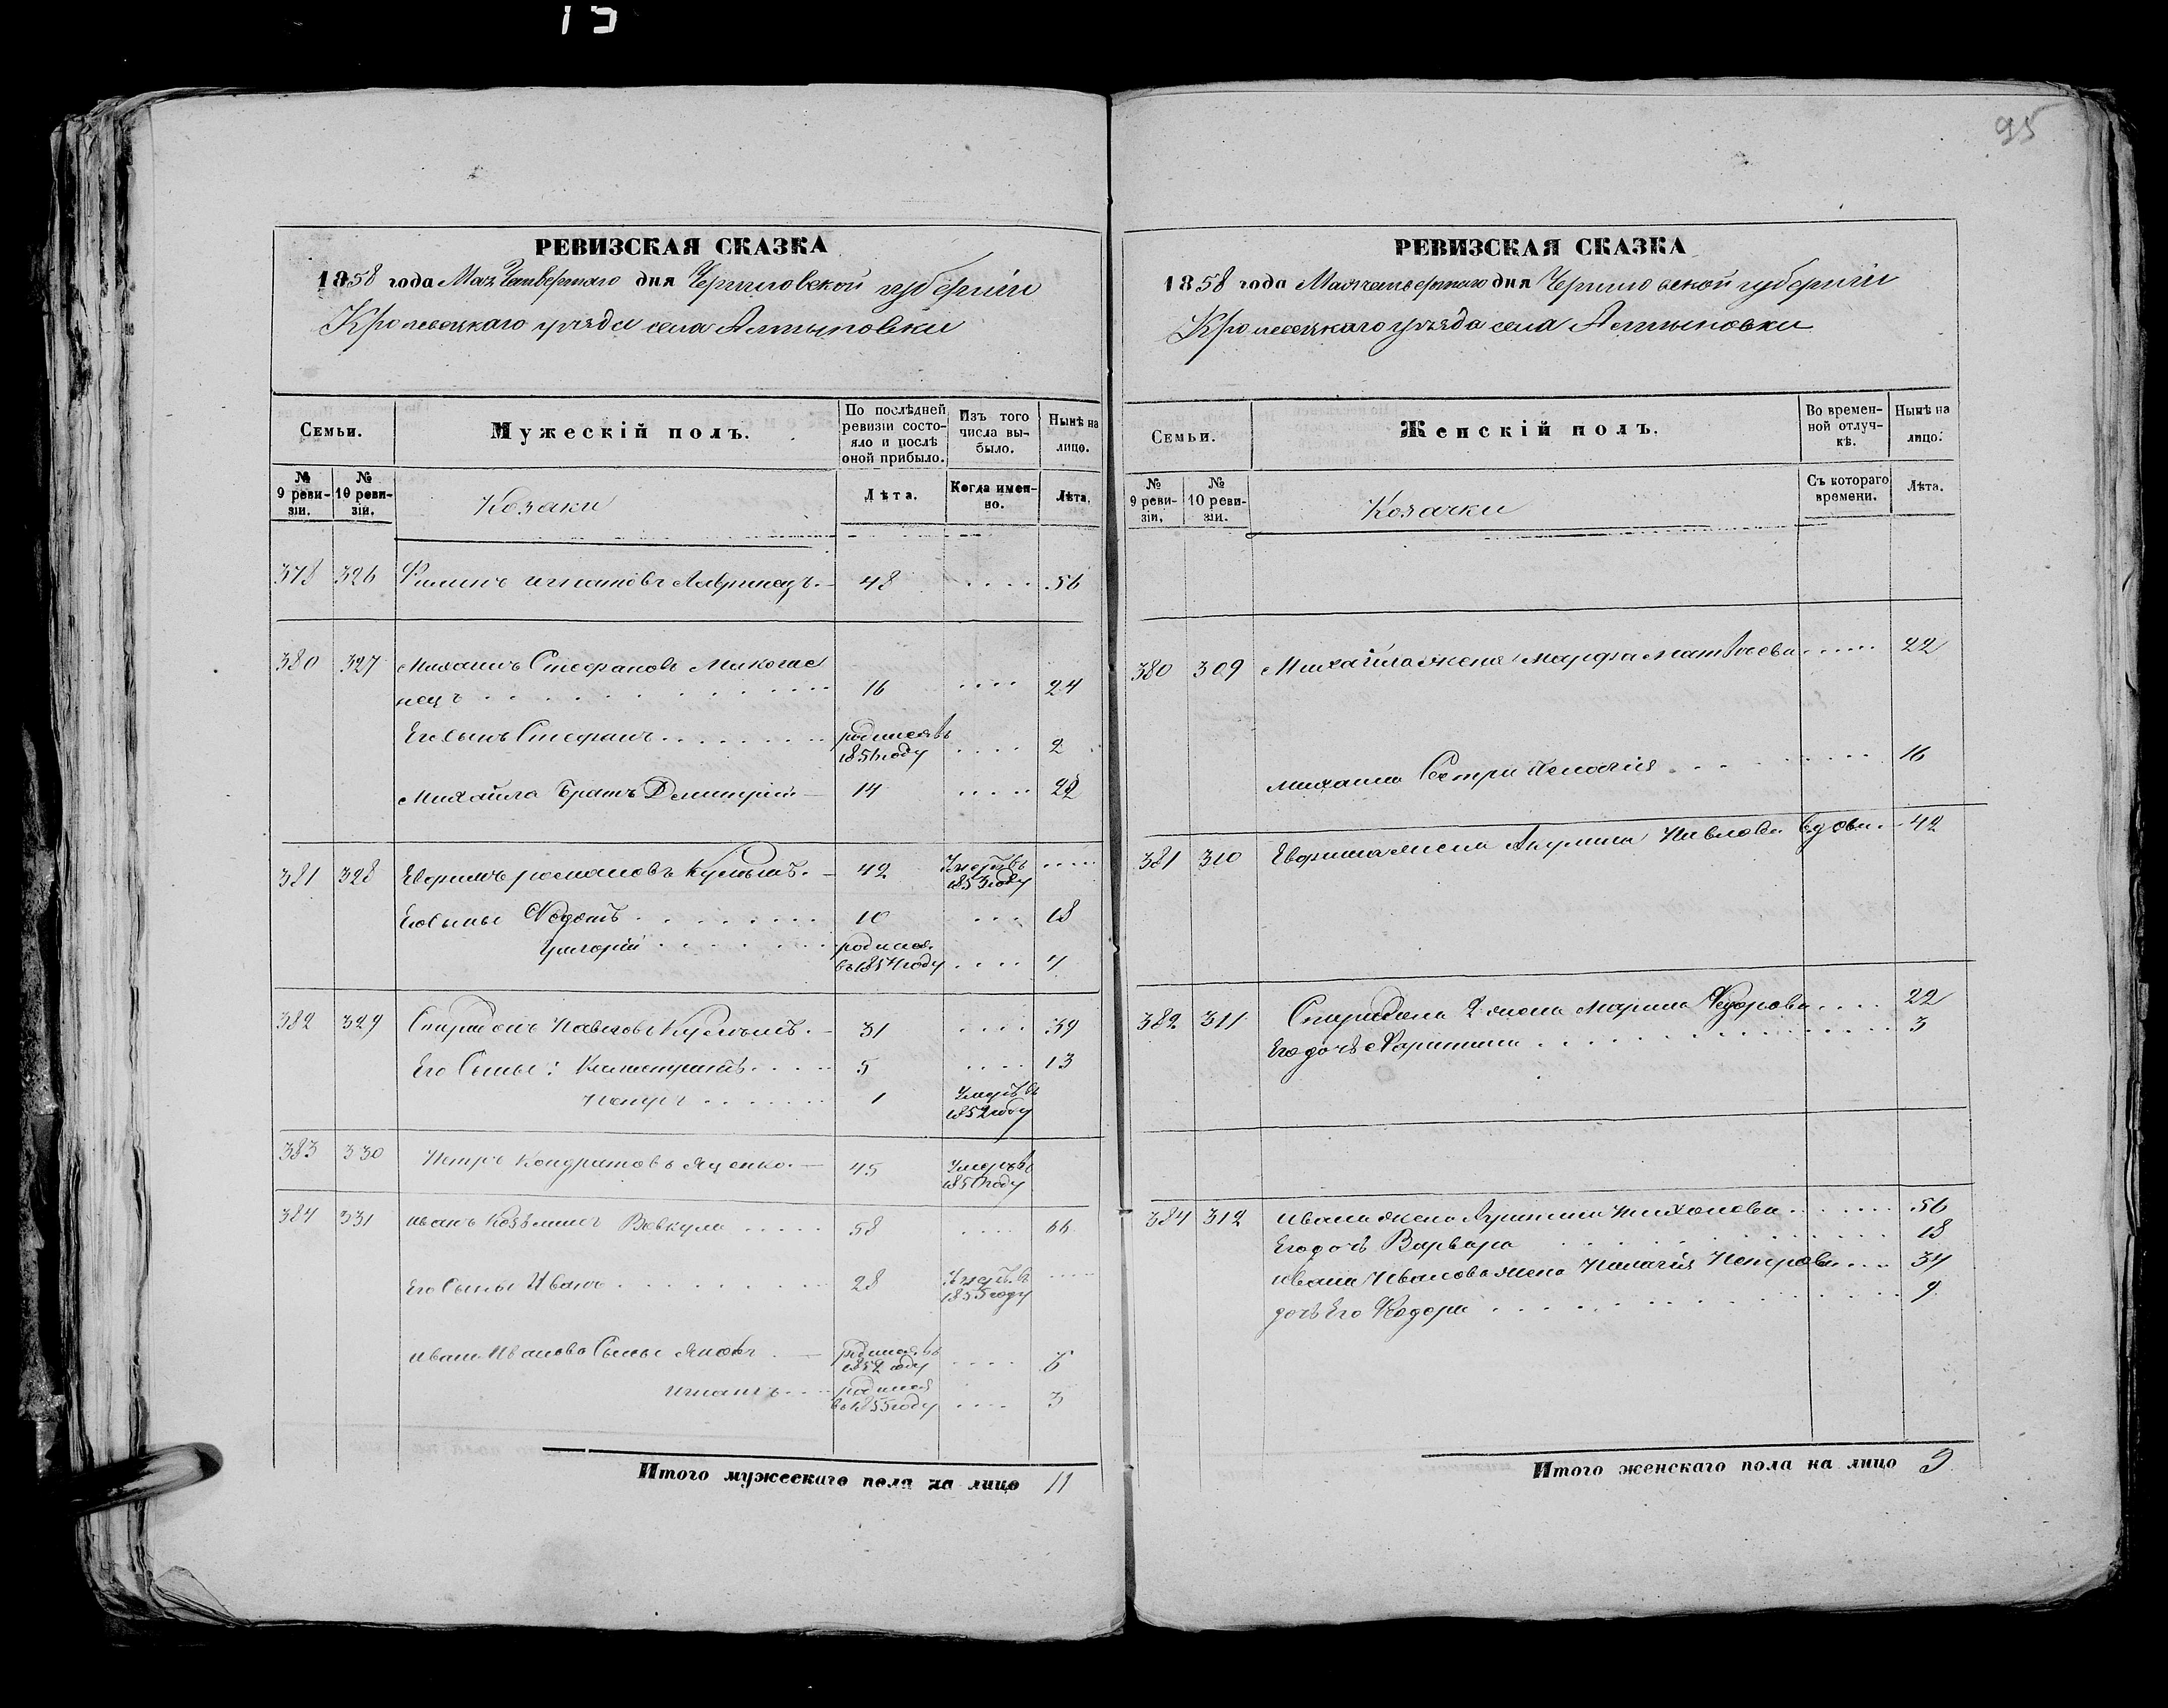 95
РЕВИЗСКАЯ СКАЗКА
1858 года Мая Четвертаго дня Черниговской губерніи
Кролевецкаго уѣзда села Алтыновки
Семьи.
Мужескій полъ.
По послѣдней ревизіи состояло и послѣ оной прибыло.
Изъ того числа выбыло.
Нынѣ на лицо.
№ 9 ревизіи.
№ 10 ревизіи.
Козаки
Лѣта.
Когда именно.
Лѣта.
378 326 Филипъ Игнатовъ 48 56
380 327 Михаилъ Стефановъ
нецъ 16 24
Его сынъ Стефанъ родился въ 1856 году 2
Михайла братъ Димитрій 14 22
381 328 романовъ 42 Умеръ въ 1853 году
Его сыны Федотъ 10 18
Григорій родился въ 1854 году 4
382 329 Спиридонъ Павловъ 31 39
Его Сыны: 5 13
Петръ 1 Умеръ въ 1852 году
383 330 Петръ Кондратовъ Яценко 45 Умеръ въ 1856 году
384 331 Иванъ 58 66
Его Сыны Иванъ 28 Умеръ въ 1855 году
Ивана Иванова Сыны Яковъ родился въ 1852 году 6
Игнатъ родился въ 1855 году 3
Итого мужескаго пола на лицо 11
РЕВИЗСКАЯ СКАЗКА
1858 года Мая четвертаго дня Черниговской губерніи
Кролевецкаго уѣзда села Алтыновки
Семьи.
Женскій полъ.
Во временной отлучкѣ.
Нынѣ на лицо.
№ 9 ревизіи.
№ 10 ревизіи.
Козачки
Съ котораго времени.
Лѣта.
380 309 Михайла жена Марфа Матвѣева 22
Михаила Сестра 16
381 310 жена Акулина Павлова вдова 42
382 311 Спиридона 2 жена Марина Федорова 22
Его дочь 3
384 312 Ивана жена Тихонова 56
Его дочь Варвара 18
Ивана Иванова жена Пелагія Петрова 34
дочь Его Федора 9
Итого женскаго пола на лицо 9